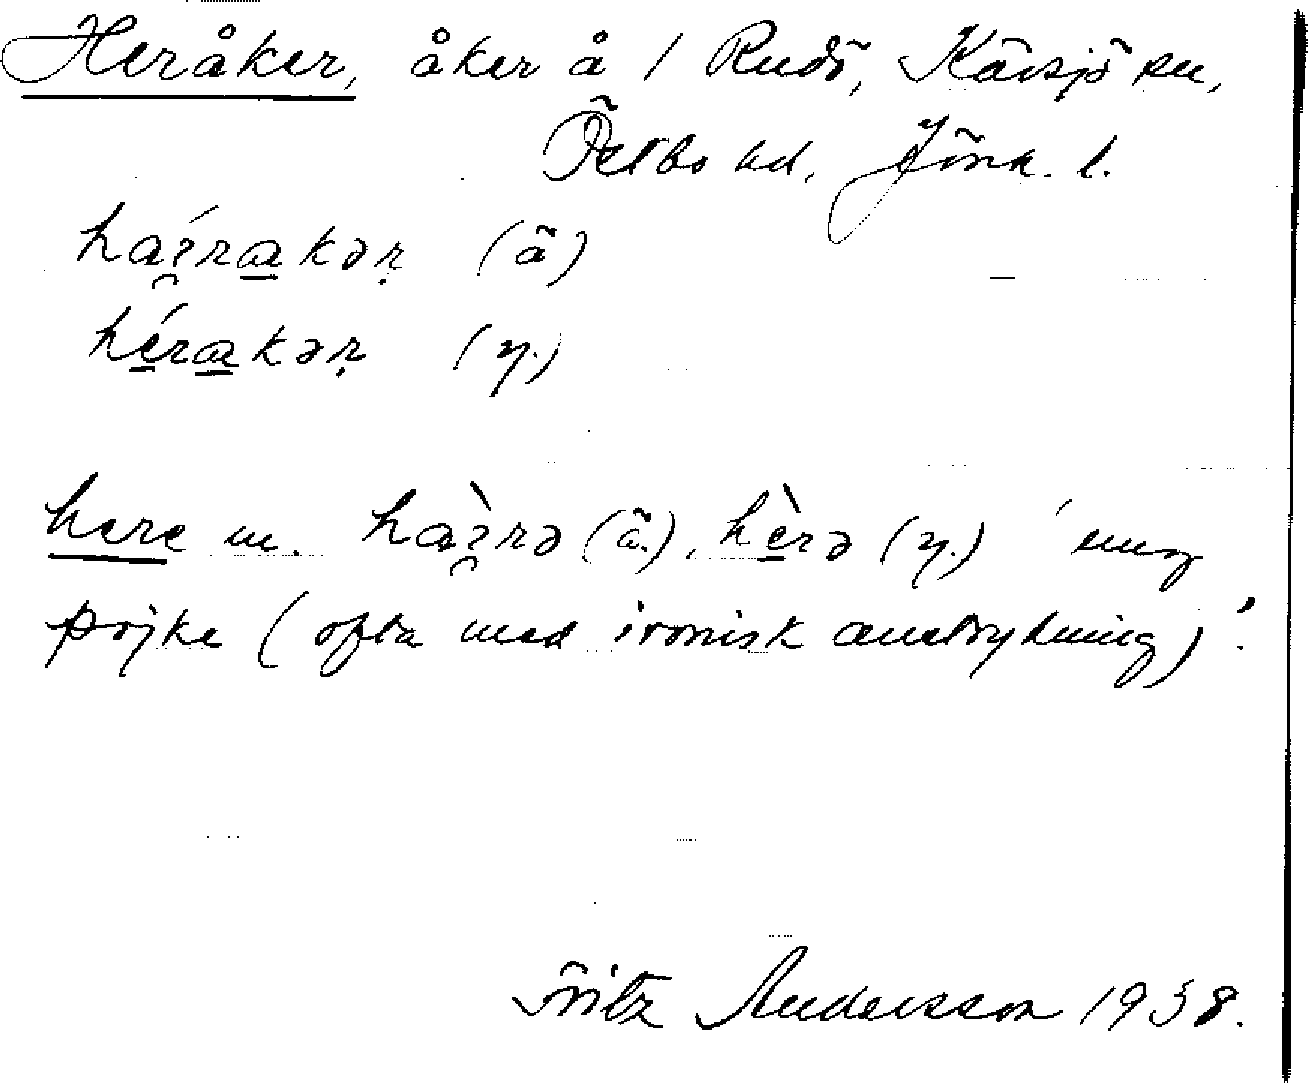 Heråker, åker å 1 Rudö, Kävsjö sn,
Östbo hd, Jönk. l.
haɨ́rakər (ä)
hérakər (y.)
here m. haɨ̀rə (ä.), hèrə (y.) 'ung
pojke (ofta med ironisk anstrykning)'.
Fritz Andersson 1938.